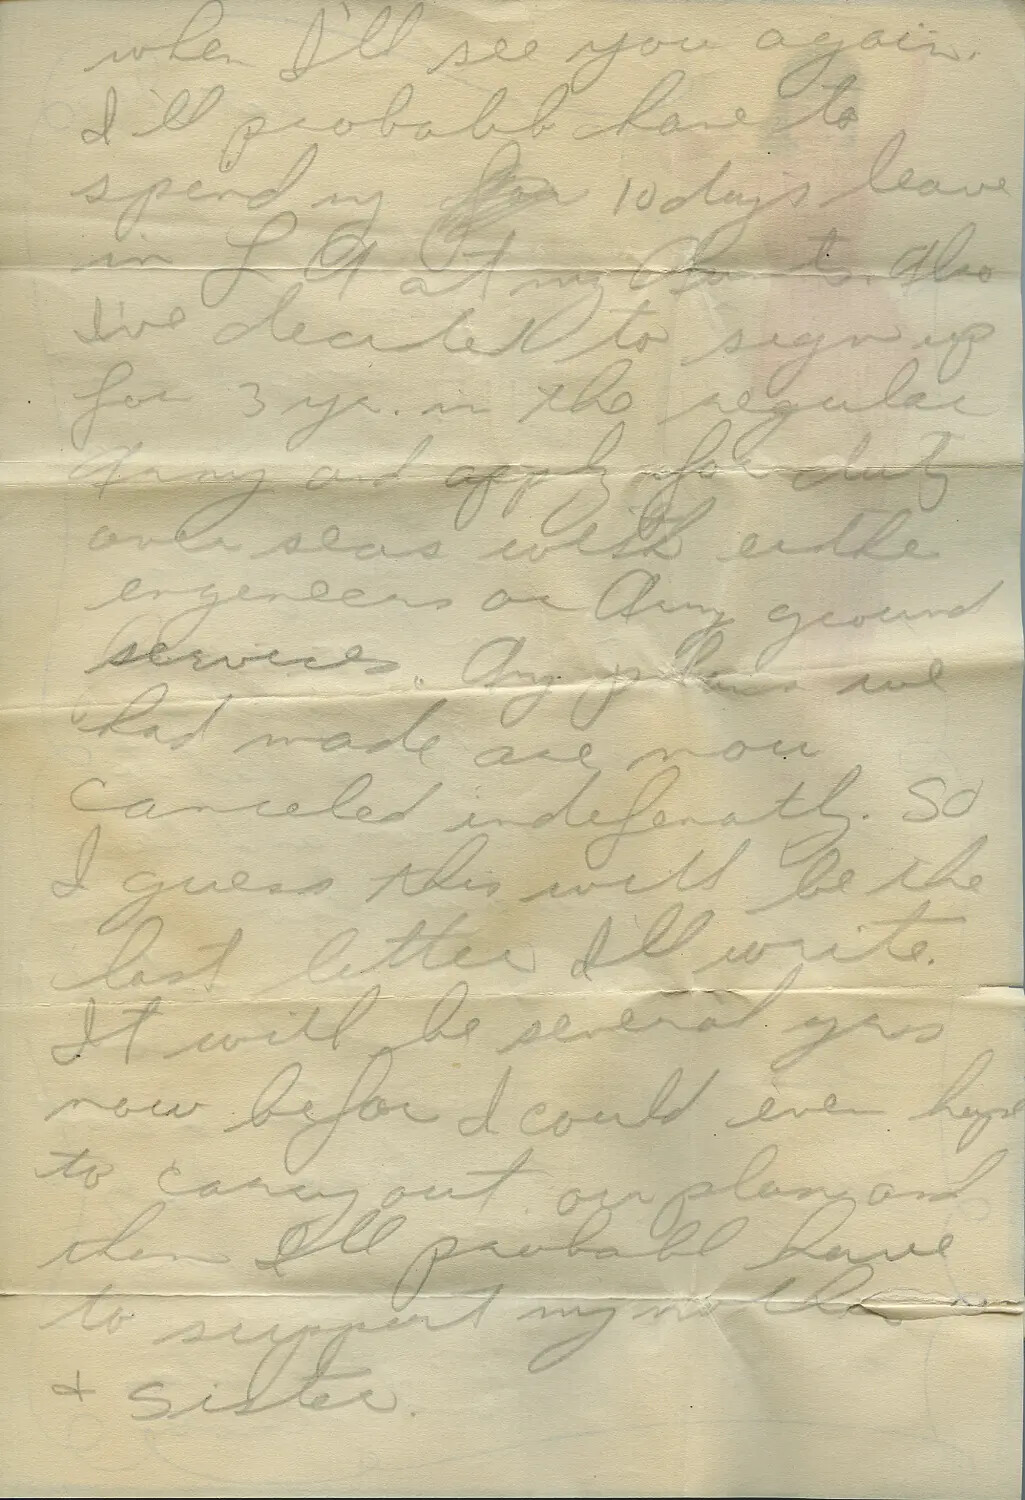 when I'll see you again.
I'll probabbl have to
spend my 10 days leave
in L A at my Aunts. Also
I've decided to sign up
for 3 yr. in the regular
Army and apply for duty
over seas with eithe
engeneers or Army ground
services. Any plans we
had made are now
canceled indefenatly. So
I guess this will be the
last letter I'll write.
It will be several yrs
now befor I could even hope
to carry out our plans and
then I'll probabl have
to support my mother
+ Sister.